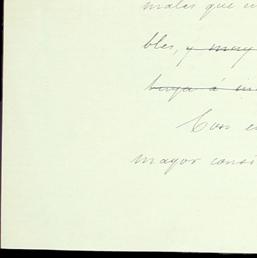 malas que
bles, y muy
haya á
Con
mayor consi